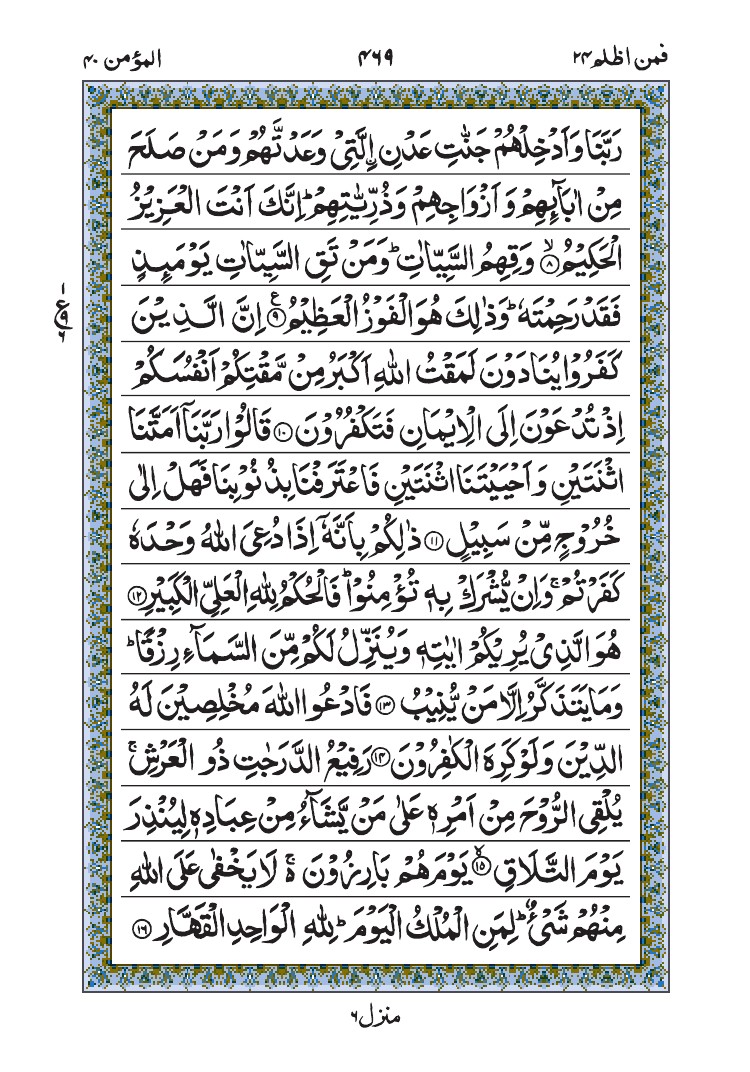 فمن اظلم ۲۴
۴۶۹
المؤمن ۴۰
رَبَّنَا وَاَدْخِلْهُمْ جَنّٰتِ عَدْنِ ِ۟الَّتِیْ وَعَدْتَّهُمْ وَمَنْ صَلَحَ
مِنْ اٰبَآئِهِمْ وَاَزْوَاجِهِمْ وَذُرِّیّٰتِهِمْ ؕ اِنَّكَ اَنْتَ الْعَزِیْزُ
الْحَكِیْمُ ۙ﴿۸﴾ وَقِهِمُ السَّیِّاٰتِ ؕ وَمَنْ تَقِ السَّیِّاٰتِ یَوْمَئِذٍ
فَقَدْ رَحِمْتَهٗ ؕ وَذٰلِكَ هُوَ الْفَوْزُ الْعَظِیْمُ ﴿۹﴾ۧ اِنَّ الَّذِیْنَ
كَفَرُوْا یُنَادَوْنَ لَمَقْتُ اللّٰهِ اَكْبَرُ مِنْ مَّقْتِكُمْ اَنْفُسَكُمْ
اِذْ تُدْعَوْنَ اِلَی الْاِیْمَانِ فَتَكْفُرُوْنَ ﴿۱۰﴾ قَالُوْا رَبَّنَاۤ اَمَتَّنَا
اثْنَتَیْنِ وَاَحْیَیْتَنَا اثْنَتَیْنِ فَاعْتَرَفْنَا بِذُنُوْبِنَا فَهَلْ اِلٰی
خُرُوْجٍ مِّنْ سَبِیْلٍ ﴿۱۱﴾ ذٰلِكُمْ بِاَنَّهٗۤ اِذَا دُعِیَ اللّٰهُ وَحْدَهٗ
كَفَرْتُمْ ۚ وَاِنْ یُّشْرَكْ بِهٖ تُؤْمِنُوْا ؕ فَالْحُكْمُ لِلّٰهِ الْعَلِیِّ الْكَبِیْرِ ﴿۱۲﴾
هُوَ الَّذِیْ یُرِیْكُمْ اٰیٰتِهٖ وَیُنَزِّلُ لَكُمْ مِّنَ السَّمَآءِ رِزْقًا ؕ
وَمَا یَتَذَكَّرُ اِلَّا مَنْ یُّنِیْبُ ﴿۱۳﴾ فَادْعُوا اللّٰهَ مُخْلِصِیْنَ لَهُ
الدِّیْنَ وَلَوْ كَرِهَ الْكٰفِرُوْنَ ﴿۱۴﴾ رَفِیْعُ الدَّرَجٰتِ ذُو الْعَرْشِ ۚ
یُلْقِی الرُّوْحَ مِنْ اَمْرِهٖ عَلٰی مَنْ یَّشَآءُ مِنْ عِبَادِهٖ لِیُنْذِرَ
یَوْمَ التَّلَاقِ ۙ﴿۱۵﴾ یَوْمَ هُمْ بَارِزُوْنَ ۬ۚ لَا یَخْفٰی عَلَی اللّٰهِ
مِنْهُمْ شَیْءٌ ؕ لِمَنِ الْمُلْكُ الْیَوْمَ ؕ لِلّٰهِ الْوَاحِدِ الْقَهَّارِ ﴿۱۶﴾
ع
۹
۶
منزل ۶